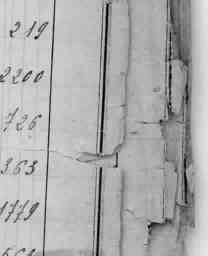 219
2200
726
363
1779